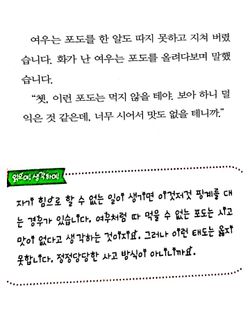 여우는 포도를 한 알도 따지 못하고 지쳐 버렸
습니다. 화가 난 여우는 포도를 올려다보며 말했
습니다.
“쳇, 이런 포도는 먹지 않을 테야. 보아 하니 덜
익은 것 같은데, 너무 시어서 맛도 없을 테니까.”
자기 힘으로 할 수 없는 일이 생기면 이것저것 핑계를 대
는 경우가 있습니다. 여우처럼 따 먹을 수 없는 포도는 시고
맛이 없다고 생각하는 것이지요. 그러나 이런 태도는 옳지
못합니다. 정정당당한 사고 방식이 아니니까요.